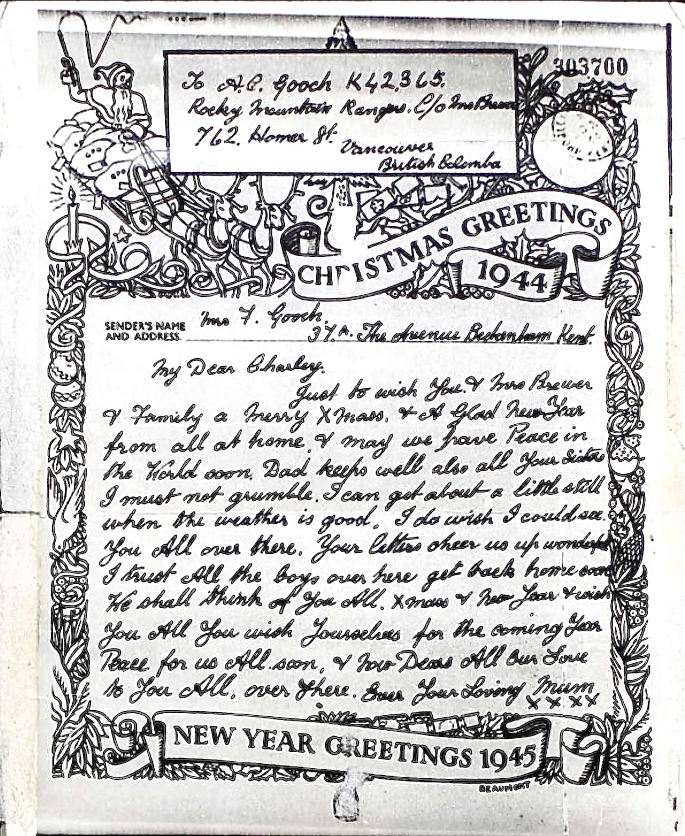 To A.C. Gooch K42,365.
303700
Rocky Mountain Rangers. C/o Mrs Brewer
762. Homer St.
Vancouver
British Colomba
CHRISTMAS GREETINGS
1944
SENDER'S NAME
AND ADDRESS
Mrs F. Gooch.
37.A. The Avenue Beckenham Kent.
My Dear Charley.
Just to wish You. & Mrs Brewer
& Family a Merry Xmass. & A Glad New Year
from all at home. & may we have Peace in
the World soon. Dad keeps well also all Your Sisters
I must not grumble. I can get about a little still
when the weather is good. I do wish I could see.
You All over there. Your letters cheer us up wonderful
I trust All the boys over here get back home soon
We shall think of You All. Xmass & New Year & wish
You All You wish Yourselves for the coming Year
Peace for us All soon. & Now Dears All Our Love
to You All. over there. Ever Your Loving Mum
x x x x
NEW YEAR GREETINGS 1945
BEAUMONT